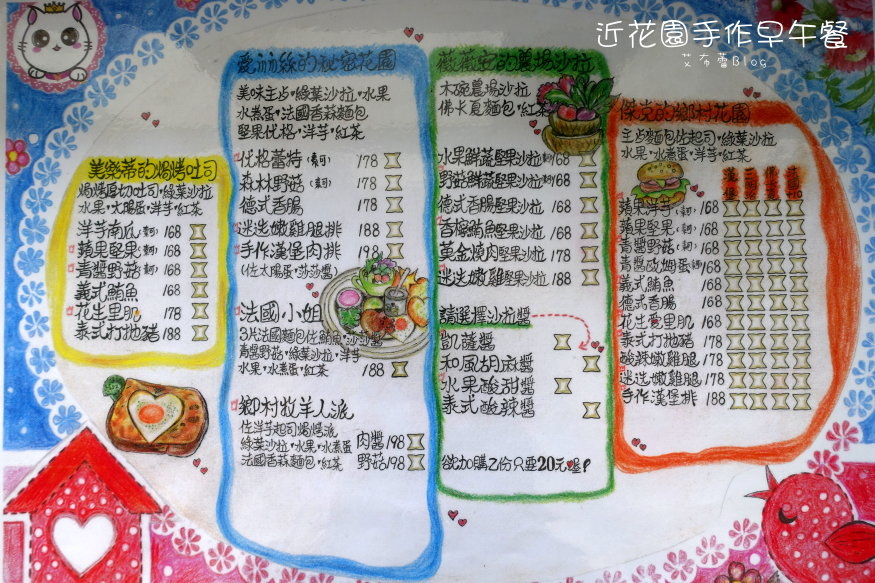 近花園手作早午餐
艾布蕾Blog
美樂蒂的焗烤吐司
焗烤厚切吐司·綠葉沙拉
水果·太陽蛋·洋芋·紅茶
洋芋南瓜(素可) 168
蘋果堅果(素可) 168
青醬野菇(素可) 168
義式鮪魚 168
花生里肌 188
泰式打拋豬 188
鹿茹絲的秘密花園
美味主占·綠葉沙拉·水果
水煮蛋·法國香蒜麵包
堅果优格·洋芋·紅茶
优格蕾特(素可) 178
森林野菇(素可) 178
德式香腸 178
迷迭嫩雞腿排 188
手作漢堡肉排 198
(佐太陽蛋·莎莎醬)
法國小姐
3片法國麵包佐鮪魚·莎莎醬
青醬野菇·綠葉沙拉·洋芋
水果·水煮蛋·紅茶 188
鄉村牧羊人派
佐洋芋起司焗烤派
綠葉沙拉·水果·水煮蛋 肉醬198
法國香蒜麵包·紅茶 野菇198
薇薇安的農場沙拉
木碗農場沙拉
佛水夏麵包·紅茶
水果鮮蔬堅果沙拉 168
野菇鮮蔬堅果沙拉 168
德式香腸堅果沙拉 168
香檸鮪魚堅果沙拉 168
黃金燒肉堅果沙拉 188
迷迭嫩雞堅果沙拉 188
請選擇沙拉醬
凱薩醬
和風胡麻醬
水果酸甜醬
泰式酸辣醬
欲加購乙份只要20元喔!
傑克的鄉村花園
主占麵包佐起司·綠葉沙拉
水果·水煮蛋·洋芋·紅茶
漢堡
+10
蘋果洋芋(素可) 168
蘋果堅果(素可) 168
青醬野菇(素可) 168
青醬歐姆蛋 168
義式鮪魚 168
德式香腸 168
花生里肌 168
泰式打拋豬 178
酸辣嫩雞腿 178
迷迭嫩雞腿 178
手作漢堡排 188